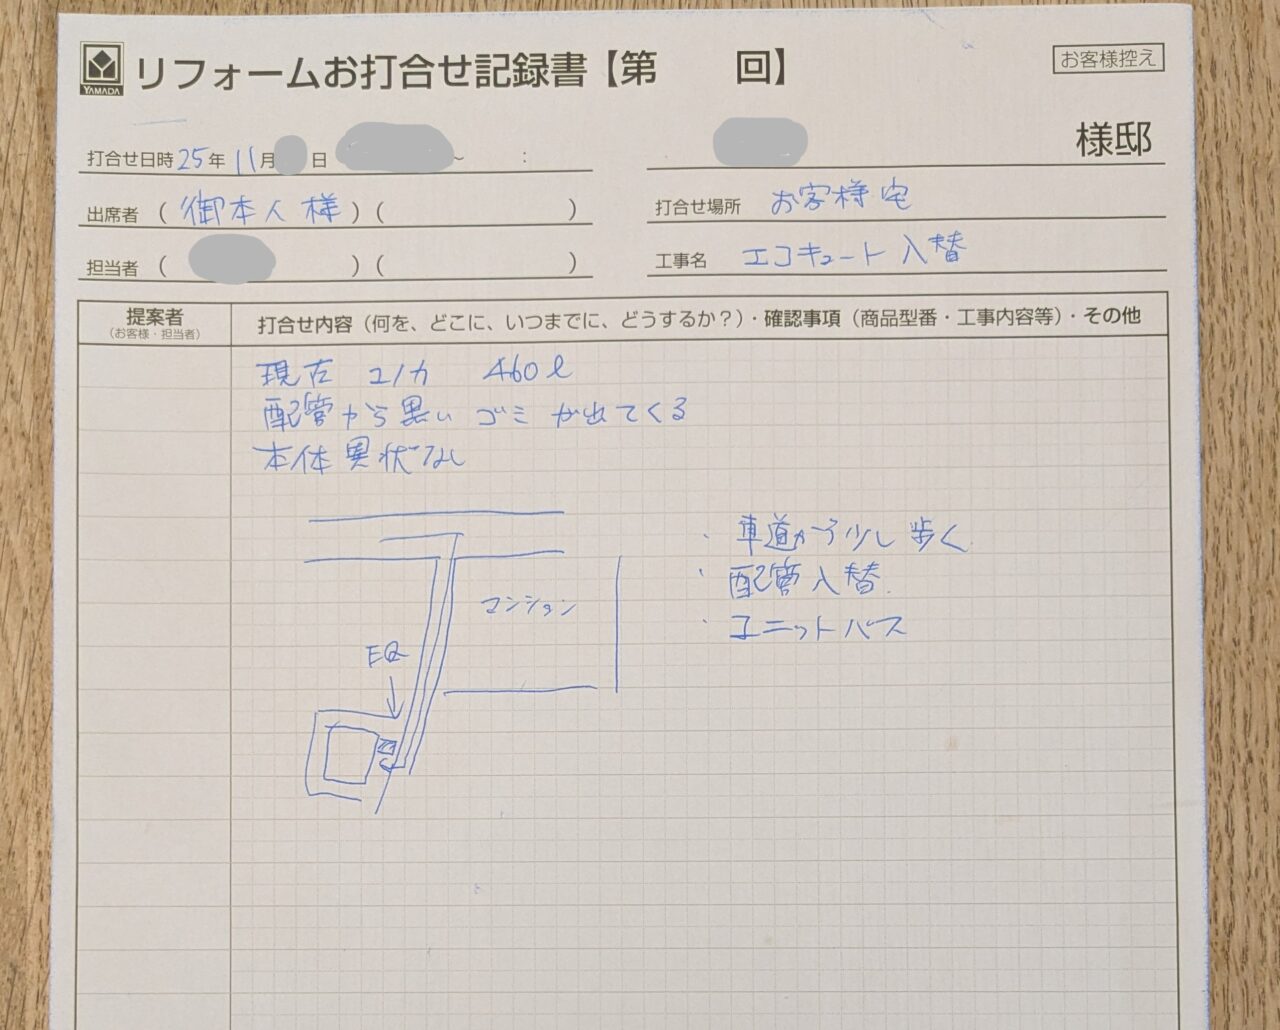 YAMADA
リフォームお打合せ記録書【第 回】
お客様控え
打合せ日時 25年 11月 日 ~ :
様邸
出席者 ( 御本人様 ) ( )
打合せ場所 お客様宅
担当者 ( ) ( )
工事名 エコキュート入替
提案者
(お客様・担当者)
打合せ内容(何を、どこに、いつまでに、どうするか?)・確認事項(商品型番・工事内容等)・その他
現在 コノカ 460ℓ
配管から黒いゴミが出てくる
本体異状なし
・車道から少し歩く
・配管入替
・ユニットバス
マンション
EQ